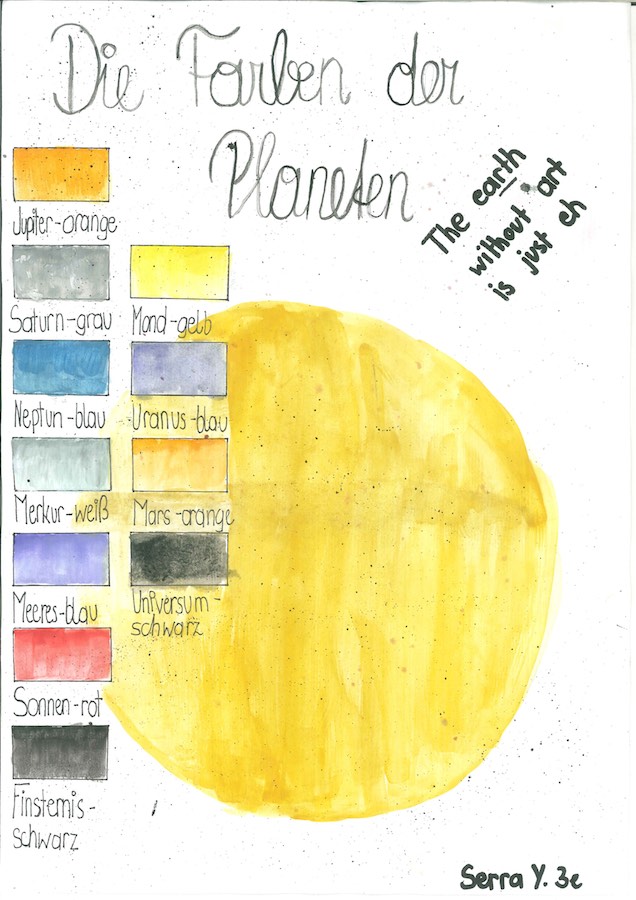 Die Farben der
Planeten
The earth
without art
is just eh
Jupiter-orange
Saturn-grau
Mond-gelb
Neptun-blau
Uranus-blau
Merkur-weiß
Mars-orange
Meeres-blau
Universum-
schwarz
Sonnen-rot
Finsternis-
schwarz
Serra Y. 3e